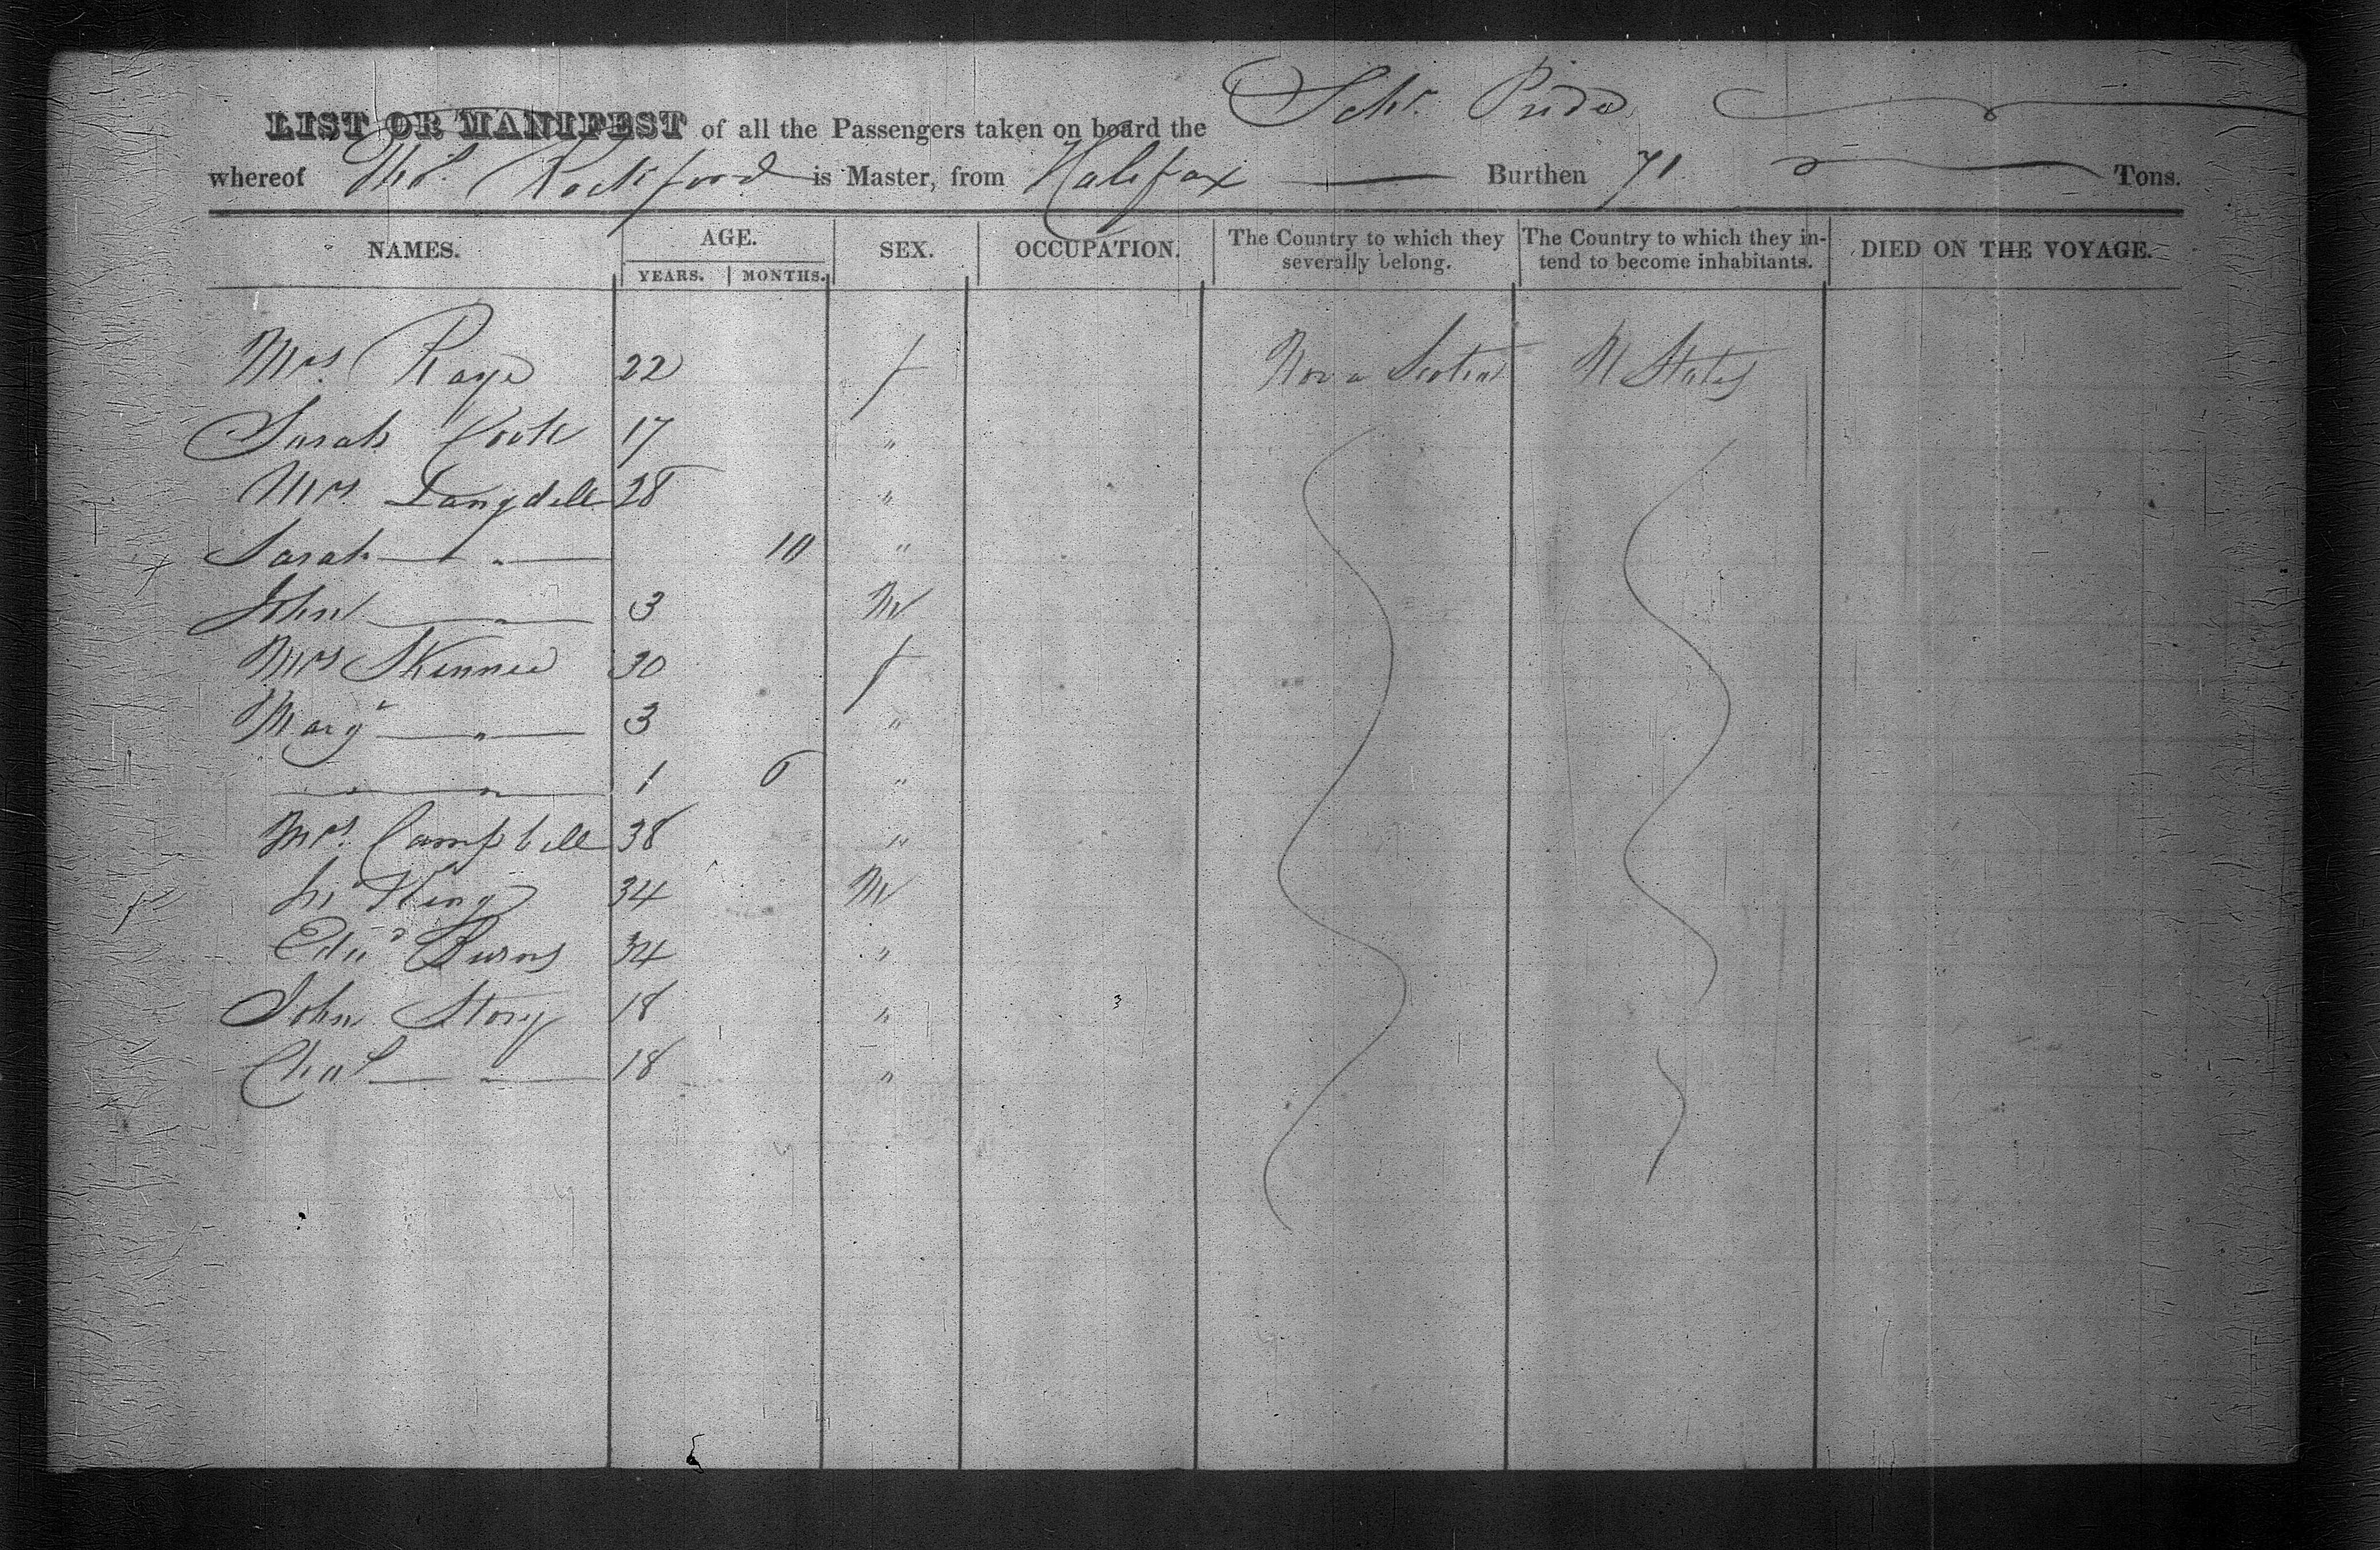 LIST OR MANIFEST of all the Passengers taken on board the Schr. Pride
whereof Thos. Rockford is Master, from Halifax Burthen 71 Tons.
NAMES. AGE. SEX. OCCUPATION. The Country to which they severally belong. The Country to which they intend to become inhabitants. DIED ON THE VOYAGE.
YEARS. MONTHS.
Mrs. Raye 22 f Nova Scotia U States
Sarah Cook 17 "
Mrs Langdell 28 "
Sarah " 10 "
John " 3 M
Mrs Skinner 30 f
Mary " 3 "
" " 1 6 "
Mrs. Campbell 38 "
King 34 M
Edwd Burns 34 "
John Story 18 "
Chas " 18 "